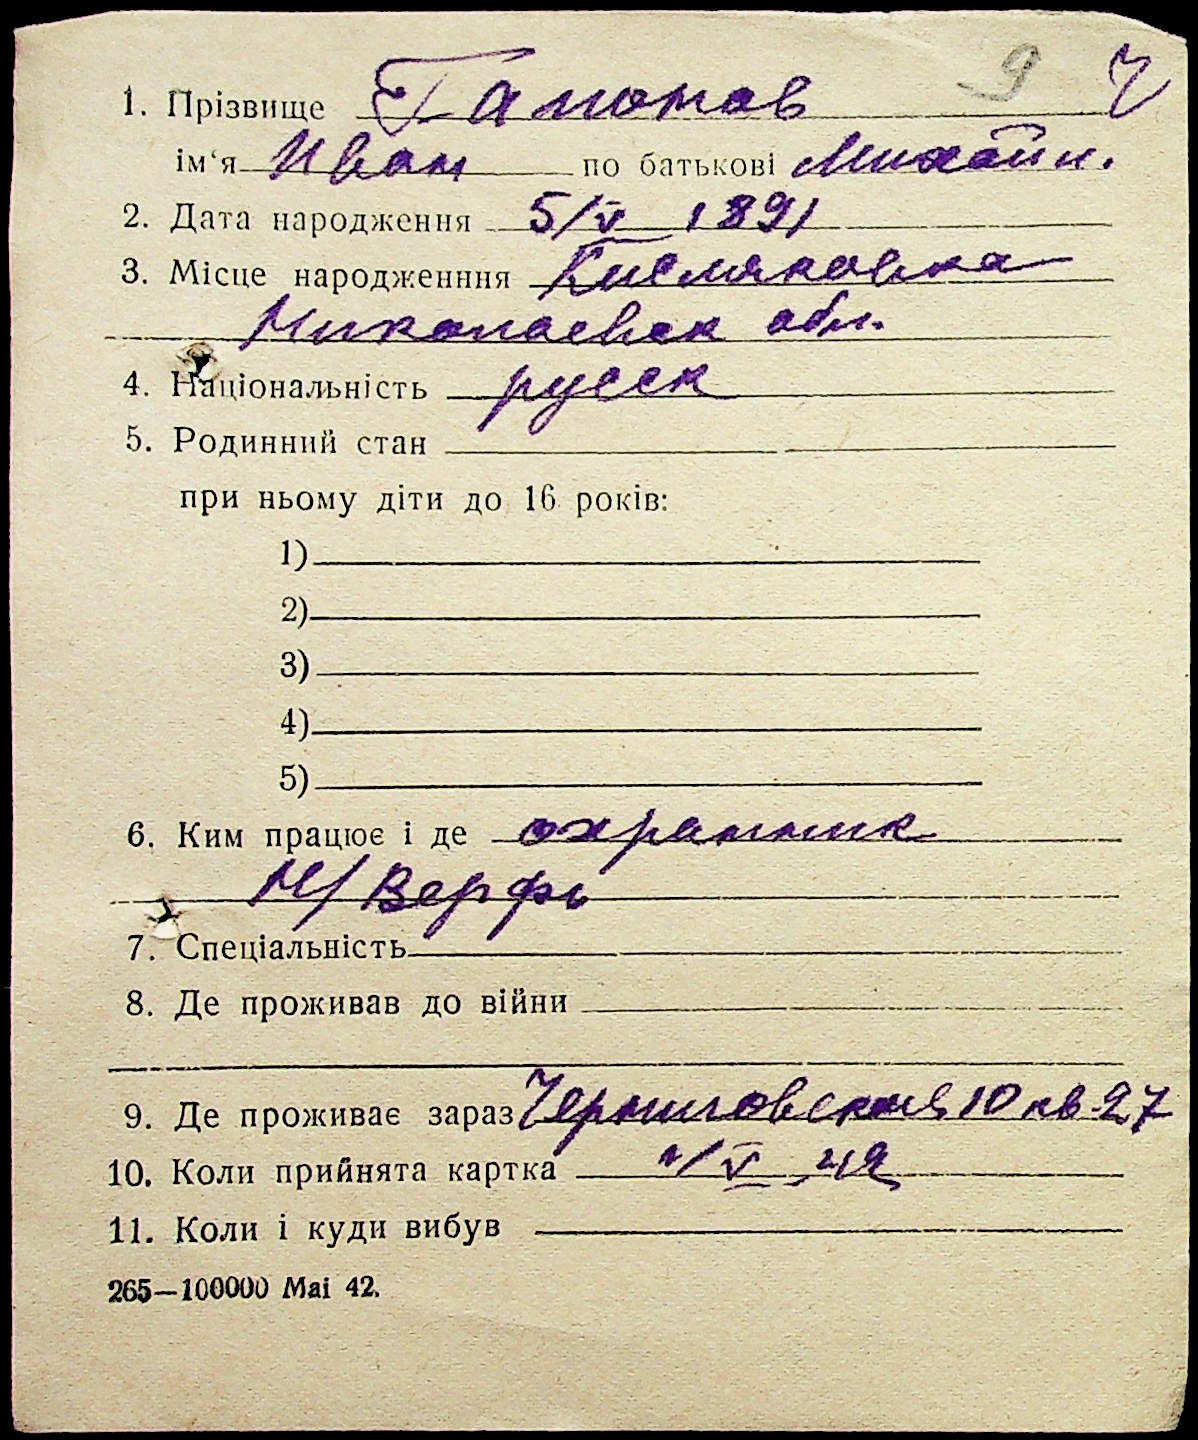 9 Ч
1. Прізвище Гапонов
ім‘я Иван по батькові Михайл.
2. Дата народження 5/V 1891
3. Місце народженння Кисляковка
Николаевск обл.
4. Національність русск
5. Родинний стан
при ньому діти до 16 років:
1)
2)
3)
4)
5)
6. Ким працює і де охранник
Н/Верфь
7. Спеціальність
8. Де проживав до війни
9. Де проживає зараз Черниговская 10 кв 27
10. Коли прийнята картка /V 42
11. Коли і куди вибув
265—100000 Mai 42.